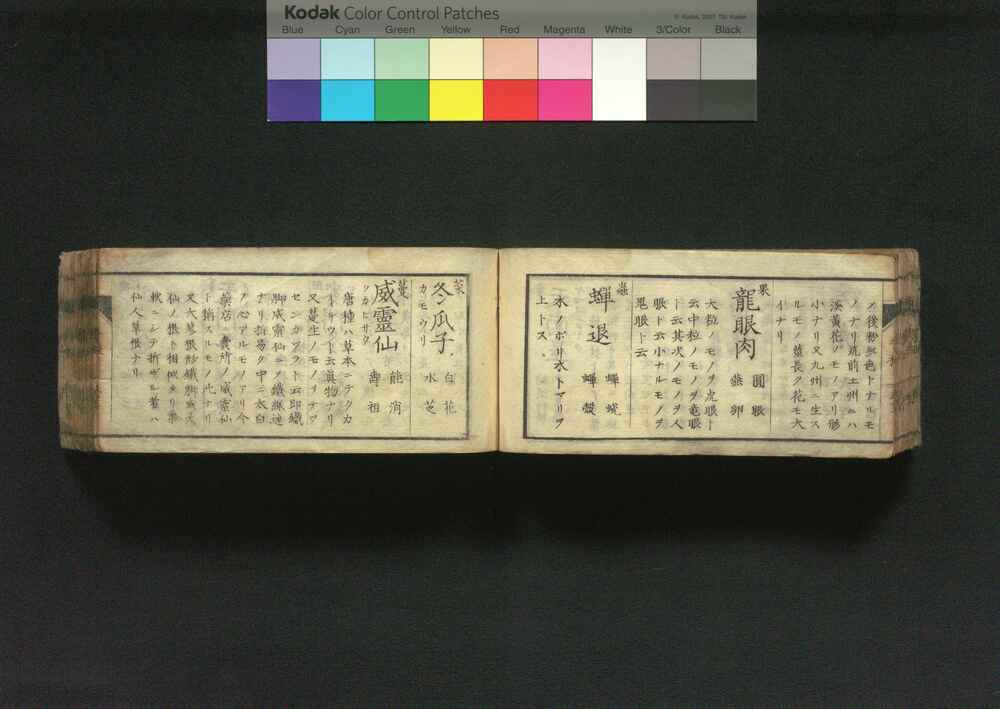 Kodak Color Control Patches
© Kodak, 2007 TM: Kodak
Blue Cyan Green Yellow Red Magenta White 3/Color Black
ス後粉紅色トナルモ
ノナリ筑前土州ニハ
淡黄花ノモノアリ形
小ナリ又九州ニ生ス
ルモノ葉長ク花モ大
イナリ
果
龍眼肉
圓眼
燕卵
大粒ノモノヲ虎眼ト
云中粒ノモノヲ竜眼
ト云其次ノモノヲ人
眼ト云小ナルモノヲ
鬼眼ト云
蟲
蟬退
蟬蛻
蟬殻
木ノボリ木トマリヲ
上トス
菜
冬瓜子
白花
カモウリ
水芝
蔓
威靈仙
能消
ツカヒサク
壽祖
唐種ハ草本ニテクカ
又蔓生ノモノヲサツ
センカツラト云即鐵
脚威靈仙ニ
ナリ折易ク中ニ太白
ア心アルモノアリ今
藥店ニ賣所ノ威靈仙
ト稱スルモノ此ナリ
仙ノ根ト相似タリ柴
軟ニシテ折ザル者ハ
仙人草根ナリ